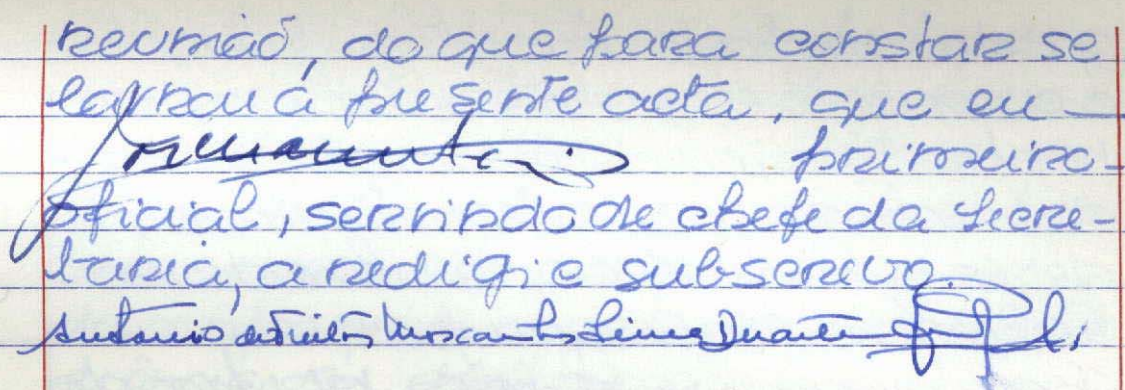 reunião, do que para constar se
lavrou a presente acta, que eu
primeiro-
oficial, servindo de chefe da Secre-
taria, a redigi e subscrevo.
Antonio Lima Duarte